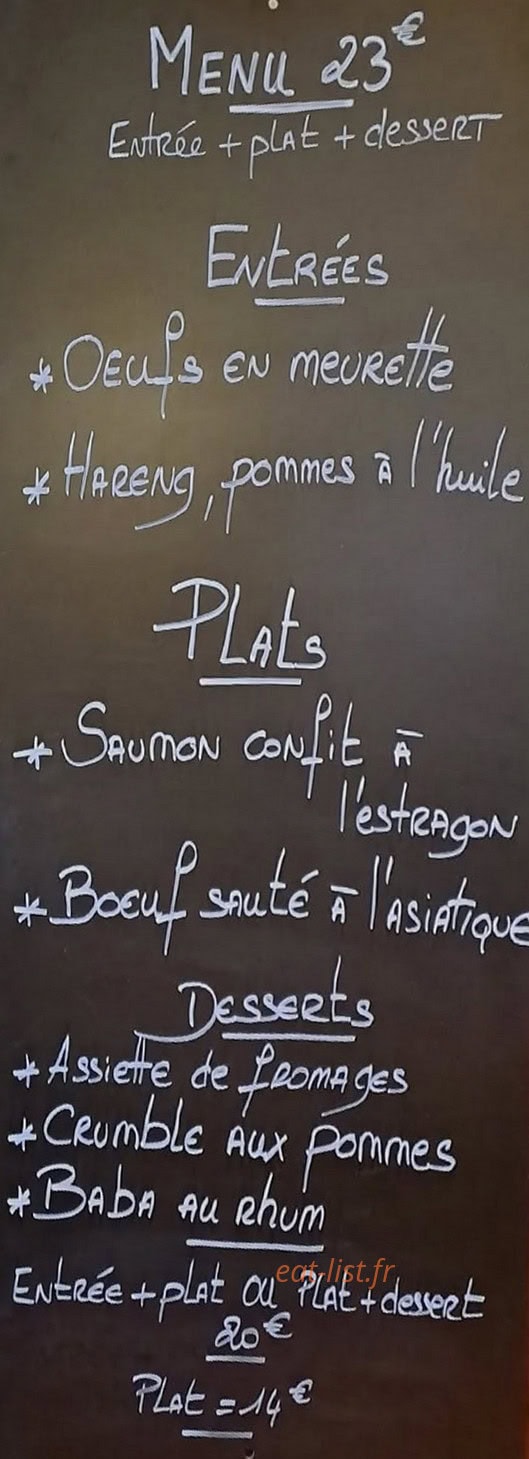 MENU 23€
ENtRéE + PLAt + dESSERT
ENtRÉES
* OEUfS EN MEUREttE
* HARENG, POMMES à l'huile
PLAtS
* SAUMON CONfit à
l'EStRAGON
* BOEUf SAUté à l'ASiAtiQUE
DESSERtS
* ASSiEttE dE fROMAGES
* CRUMbLE AUX POMMES
* BAbA AU Rhum
eat-list.fr
ENtRéE + PLAt OU PLAt + dESSERt
20€
PLAt = 14€